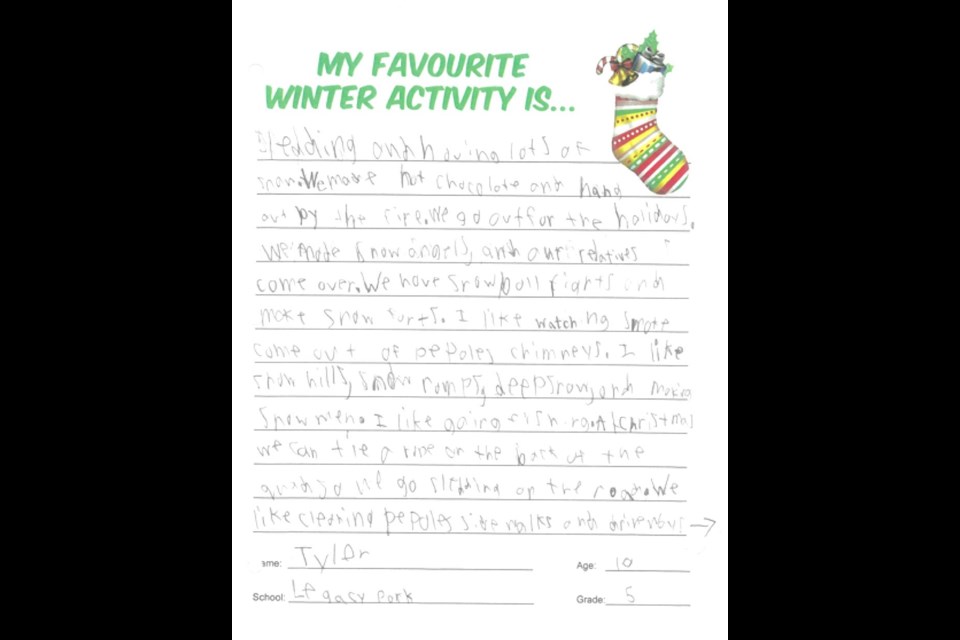 MY FAVOURITE
WINTER ACTIVITY IS...
Sledding and having lots of
snow. We make hot chocolate and hang
out by the fire. We go out for the holidays.
We made snow angels, and our relatives
come over. We have snowball fights and
make snow surfs. I like watching smoke
come out of pepoles chimneys. I like
snow hills, snow ramps, deep snow, and making
snow men. I like going fishing. At Christmas
we can tie a rope on the back of the
quad go sledding on the road. We
like cleaning pepoles side walks and driveways →
ame: Tyler
Age: 10
School: Legacy Park
Grade: 5